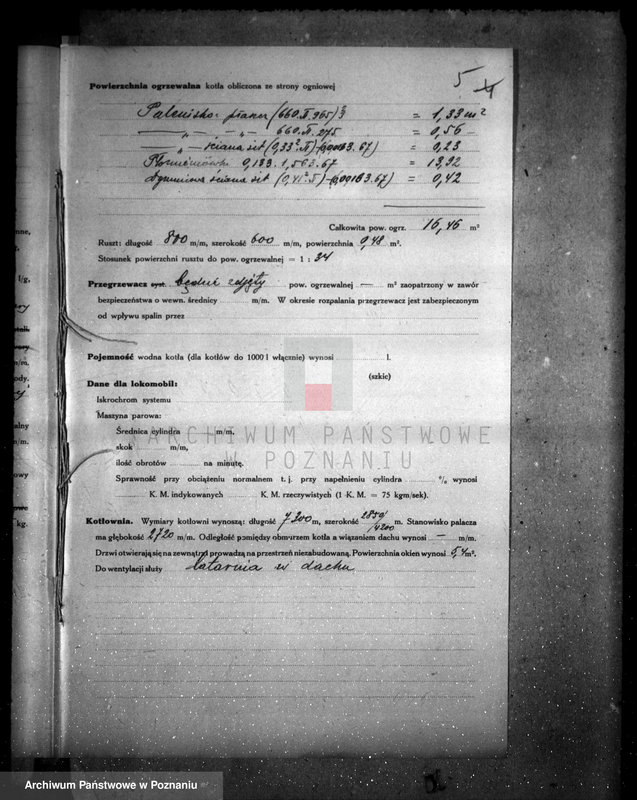 5 4
Powierzchnia ogrzewalna kotła obliczona ze strony ogniowej
Palenisko: płaner (660.π.965)⅔ = 1,33 m²
—„— —„— 660.π.275 = 0,56 —
—„— ściana sit (0,33².π)-(0,00183.67) = 0,23
Płomieniówki 0,133.1,563.67 = 13,92
Dymniowa ściana sit (0,41².π)-(0,00183.67) = 0,42
Całkowita pow. ogrz. 16,46 m²
Ruszt: długość 800 m/m, szerokość 600 m/m, powierzchnia 0,48 m².
Stosunek powierzchni rusztu do pow. ogrzewalnej = 1 : 34
Przegrzewacz syst. będzie zdjęty pow. ogrzewalnej — m² zaopatrzony w zawór
bezpieczeństwa o wewn. średnicy m/m. W okresie rozpalania przegrzewacz jest zabezpieczonym
od wpływu spalin przez
Pojemność wodna kotła (dla kotłów do 1000 l włącznie) wynosi l.
(szkic)
Dane dla lokomobil:
Iskrochrom systemu
Maszyna parowa:
Średnica cylindra m/m.
skok m/m,
ilość obrotów na minutę.
Sprawność przy obciążeniu normalnem t. j. przy napełnieniu cylindra % wynosi
K. M. indykowanych K. M. rzeczywistych (1 K. M. = 75 kgm/sek).
Kotłownia. Wymiary kotłowni wynoszą: długość 7200 m, szerokość 2850/4200 m. Stanowisko palacza
ma głębokość 2720 m/m. Odległość pomiędzy obmurzem kotła a wiązaniem dachu wynosi — m/m.
Drzwi otwierają się na zewnątrz i prowadzą na przestrzeń niezabudowaną. Powierzchnia okien wynosi 0,4 m².
Do wentylacji służy latarnia w dachu
ARCHIWUM PAŃSTWOWE
W POZNANIU
Archiwum Państwowe w Poznaniu